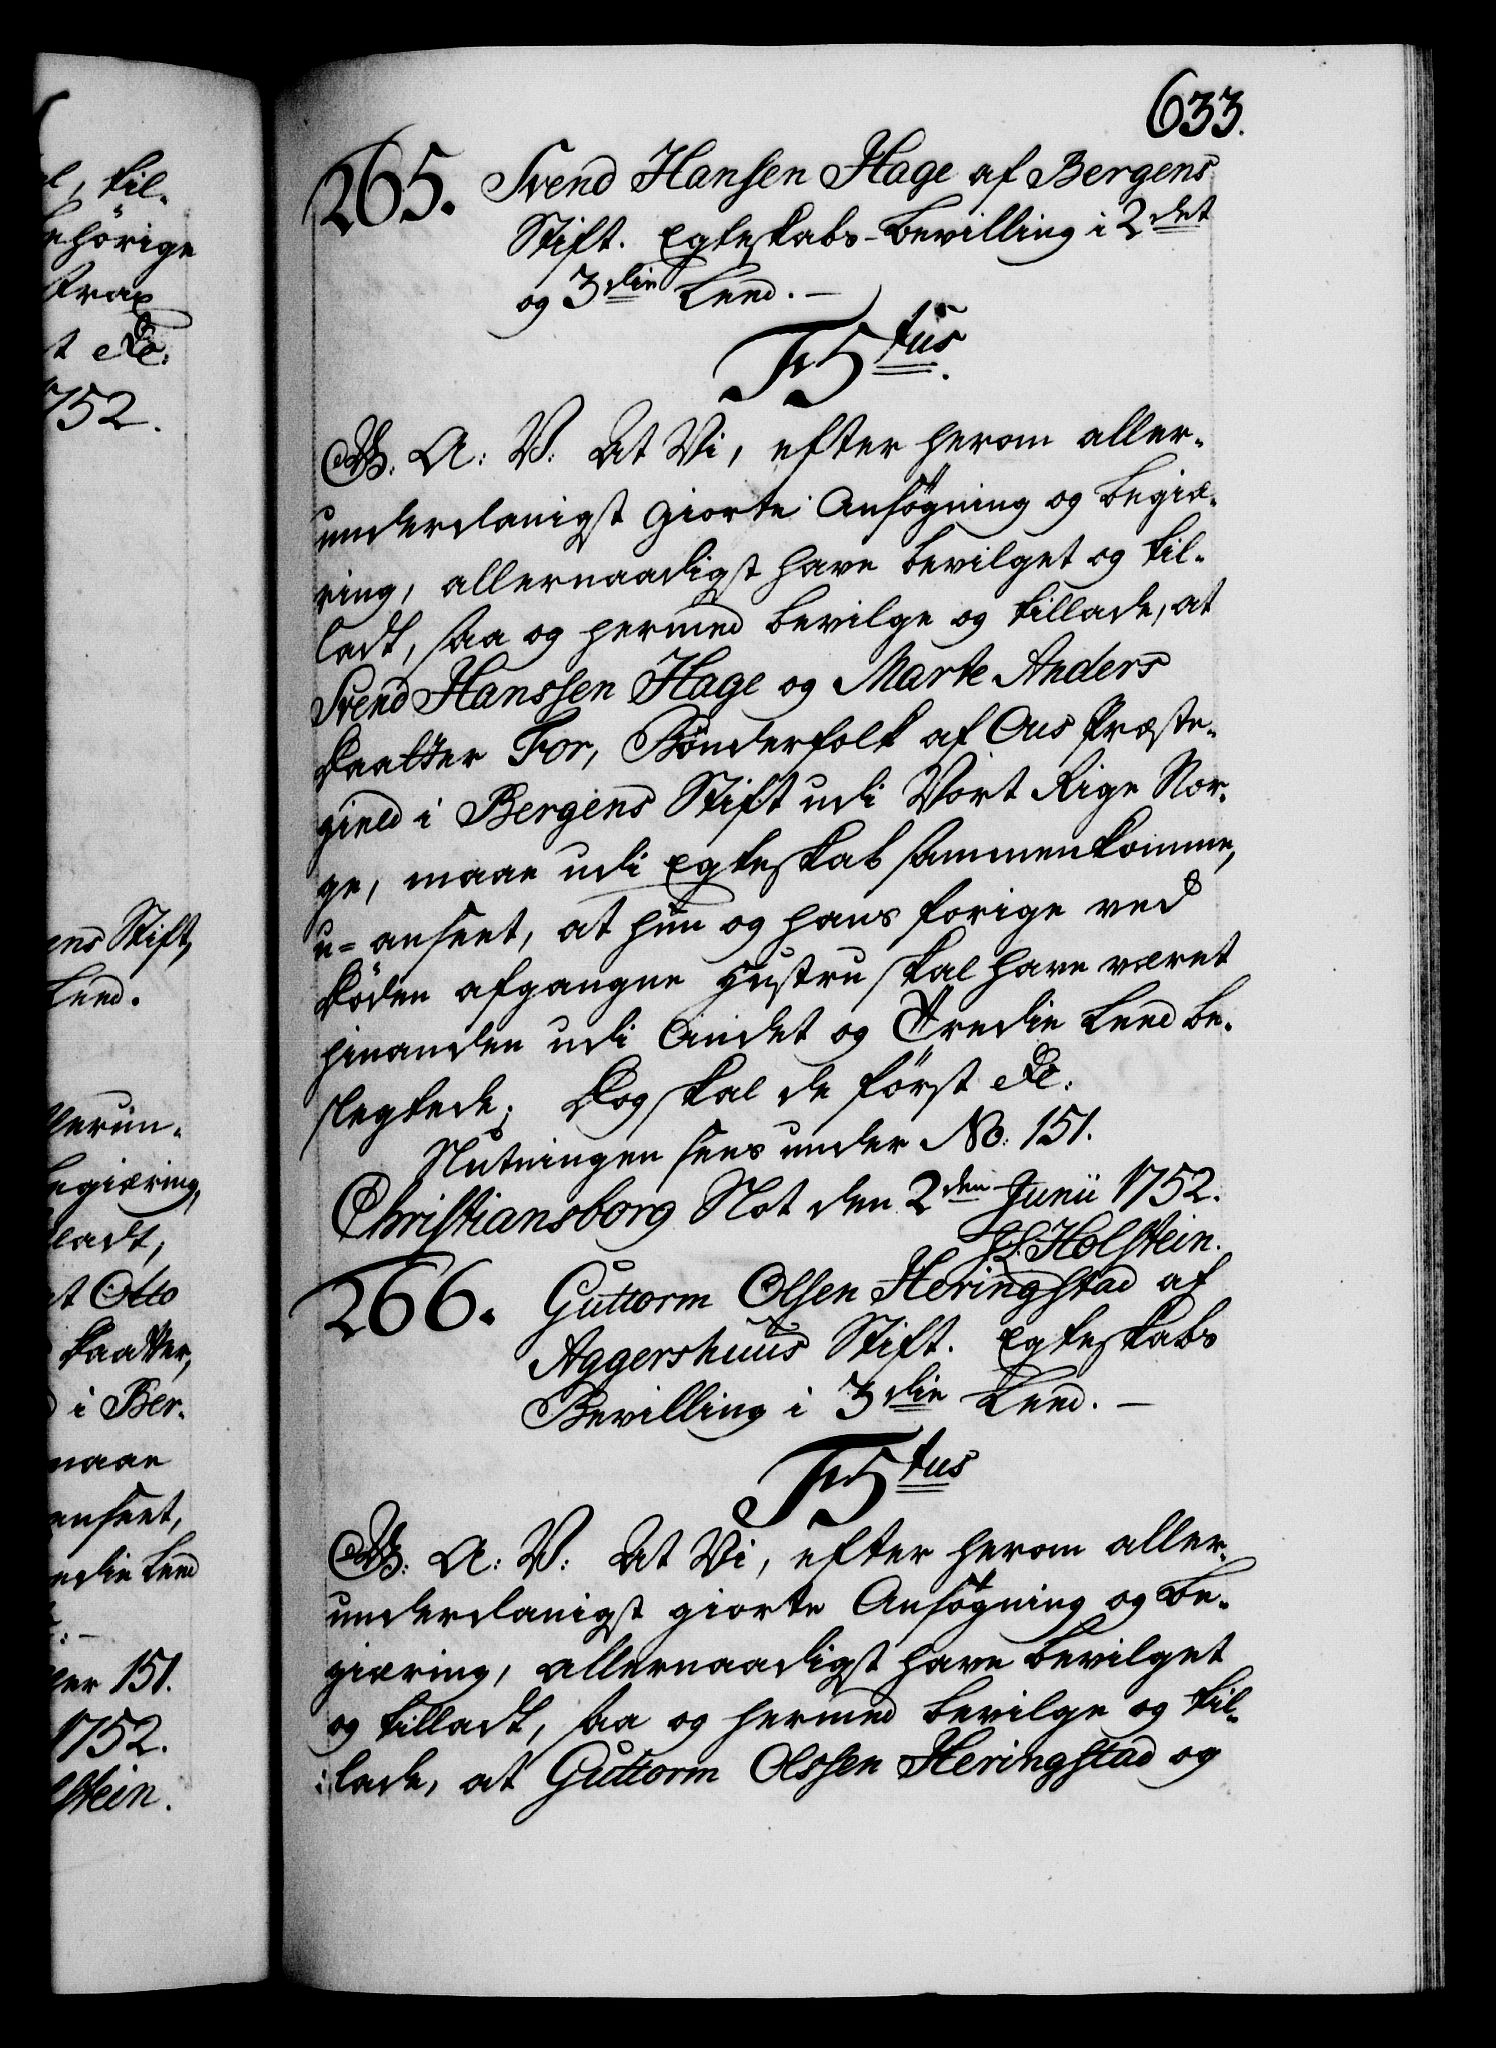 633.
265. Svend Hansen Hage af Bergens
Stift. Egteskabs-Bevilling i 2det
og 3die Leed.
F5tus.
G. A: V: At Vi, efter herom aller-
underdanigst giorte Ansøgning og begiæ-
ring, allernaadigst have bevilget og til-
ladt, saa og hermed bevilge og tillade, at
Svend Hanssen Hage og Marte Anders
Daatter Tor, Bönderfolk af Ous Præste-
gield i Bergens Stift udi Vort Rige Nor-
ge, maae udi Egteskab sammenkomme,
u-anseet, at hun og hans forige ved
Döden afgangne Hustru skal have været
hinanden udi Andet og Tredie Leed be-
slegtede; Dog skal de först &c:
Slutningen sees under No: 151.
Christiansborg Slot den 2den Junii 1752.
J L Holstein.
266. Guttorm Olsen Heringstad af
Aggershuus Stift. Egteskabs
Bevilling i 3die Leed.
F5tus
G. A: V: At Vi, efter herom aller-
underdanigst giorte Ansøgning og be-
giæring, allernaadigst have bevilget
og tilladt, saa og hermed bevilge og til-
lade, at Guttorm Olssen Heringstad og
til-
ehörige
Strax
t &c:
752.
ens Stift,
Leed.
llerun-
begiæring,
ladt,
at Otto
Daatter,
i Ber-
maae
anseet,
edie Leed
der 151.
1752.
lstein.